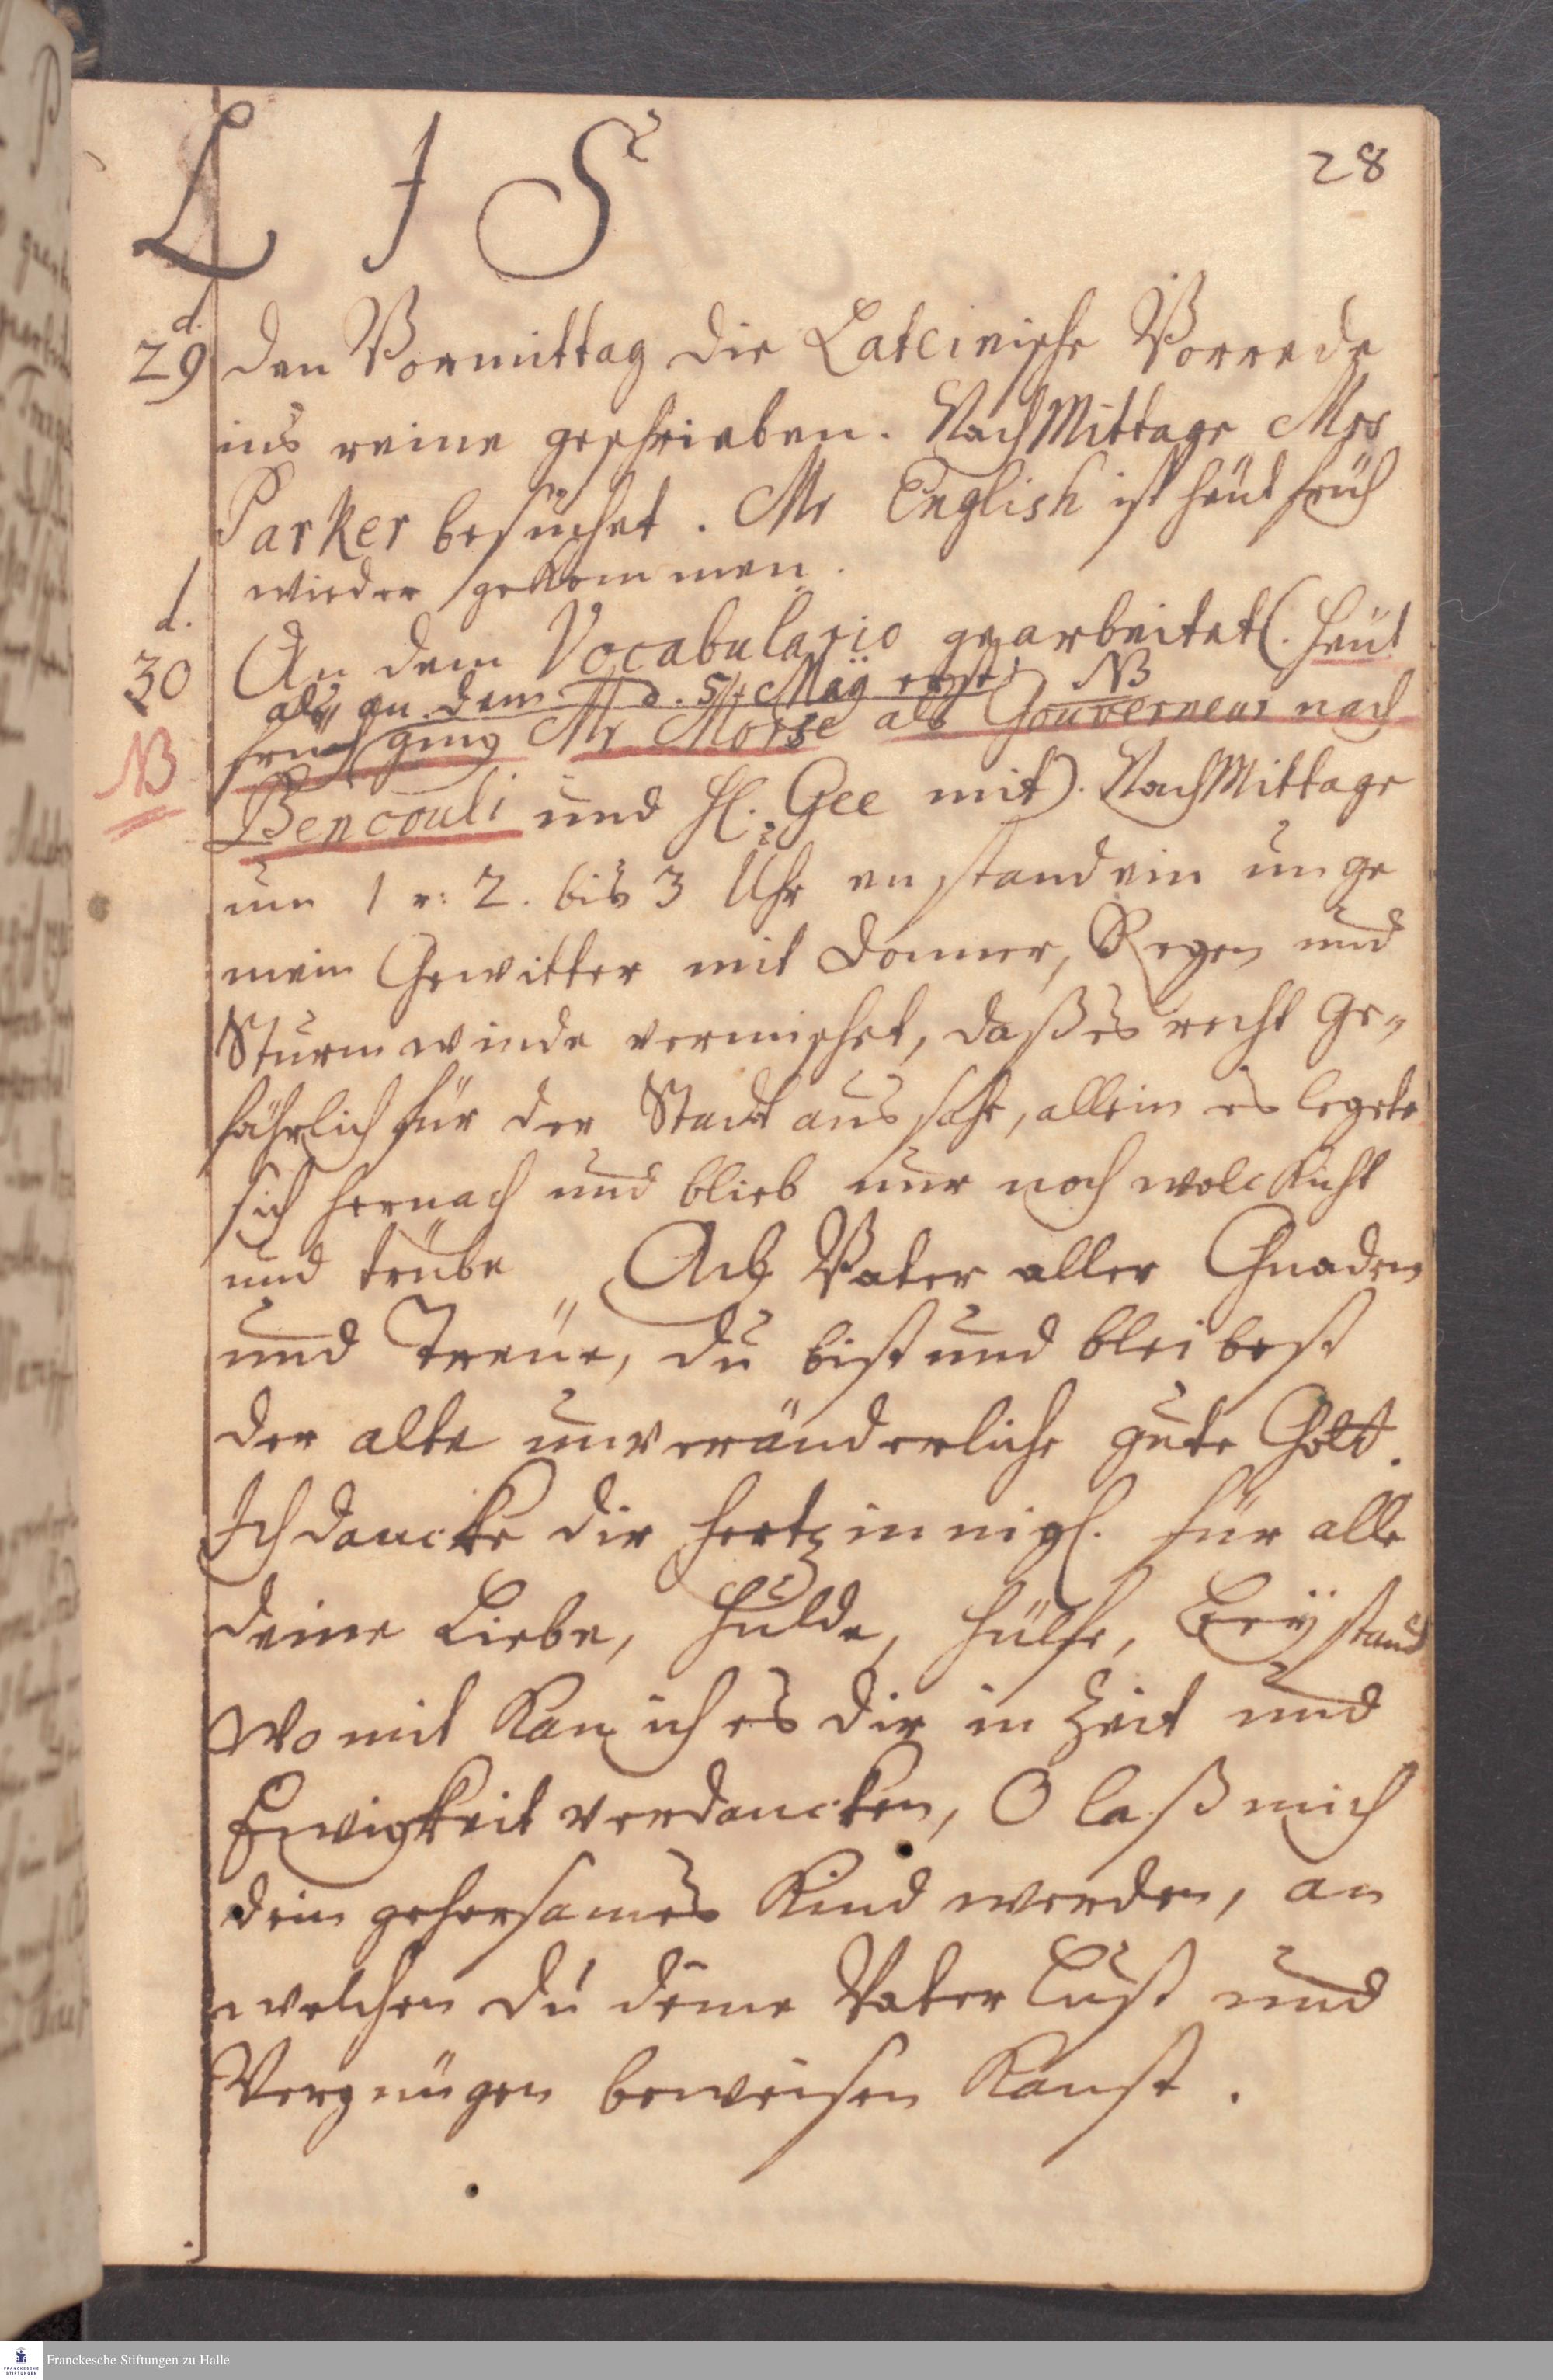 L J S
28
d.
29 den Vormittag die Lateinische Vorrede
ins reine geschrieben. NachMittage Mrs
Parker besuchet. Mr English ist heut früh
wieder gekommen.
d.
30 An dem Vocabulario gearbeitet (. heut
als an dem d. 5t Maÿ erst. NB
früh ging Mr Morse als Gouverneur nach
NB
Bencouli und H. Gee mit). NachMittage
um 1 r: 2. bis 3 Uhr enstand ein unge
mein Gewitter mit Donner, Regen und
Sturmwinde vermischet, daß es recht Ge-
fährlich für der Stadt aussahe, allein es legete
sich hernach und blieb nur noch wolckicht
und trübe Ach Vater aller Gnaden
und Treüe, du bist und bleibest
der alte unveränderliche gute Gott.
Ich dancke dir hertzinnigl. für alle
deine Liebe, Hulde, Hülfe, Beÿstand
Womit kan ich es dir in Zeit und
Ewigkeit verdancken, O laß mich
dein gehorsames Kind werden, an
welchen du deine Vater Lust und
Vergnügen beweisen kanst.
Franckesche Stiftungen zu Halle
FRANCKESCHE
STIFTUNGEN